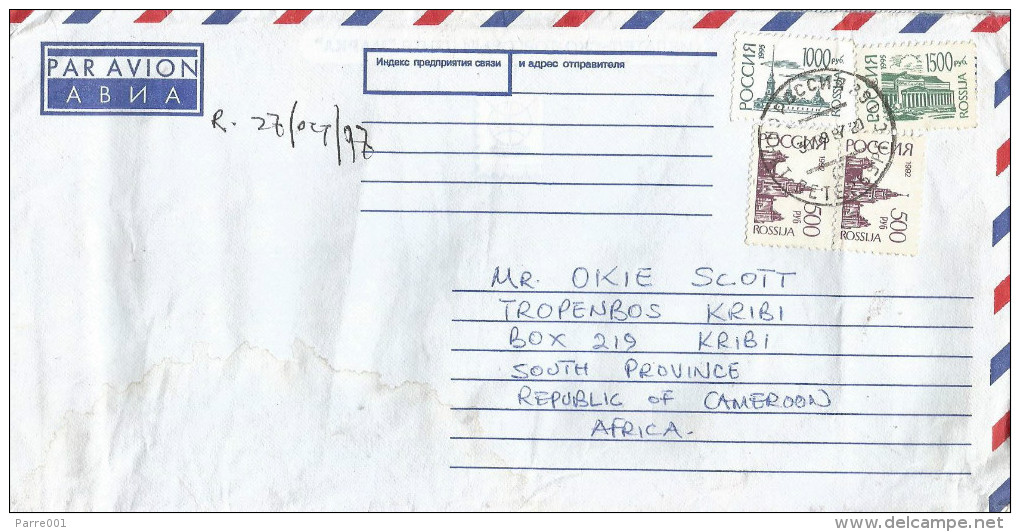 PAR AVION
АВИА
Индекс предприятия связи и адрес отправителя
R. 27/OCT/97
1000 РУБ.
РОССИЯ 1995
ROSSIJA
1500 РУБ.
РОССИЯ 1995
ROSSIJA
РОССИЯ 1992
500 РУБ
ROSSIJA
РОССИЯ 1992
500 РУБ
ROSSIJA
РОССИЯ
MR. OKIE SCOTT
TROPENBOS KRIBI
BOX 219 KRIBI
SOUTH PROVINCE
REPUBLIC OF CAMEROON
AFRICA.
Parre001
delcampe.net